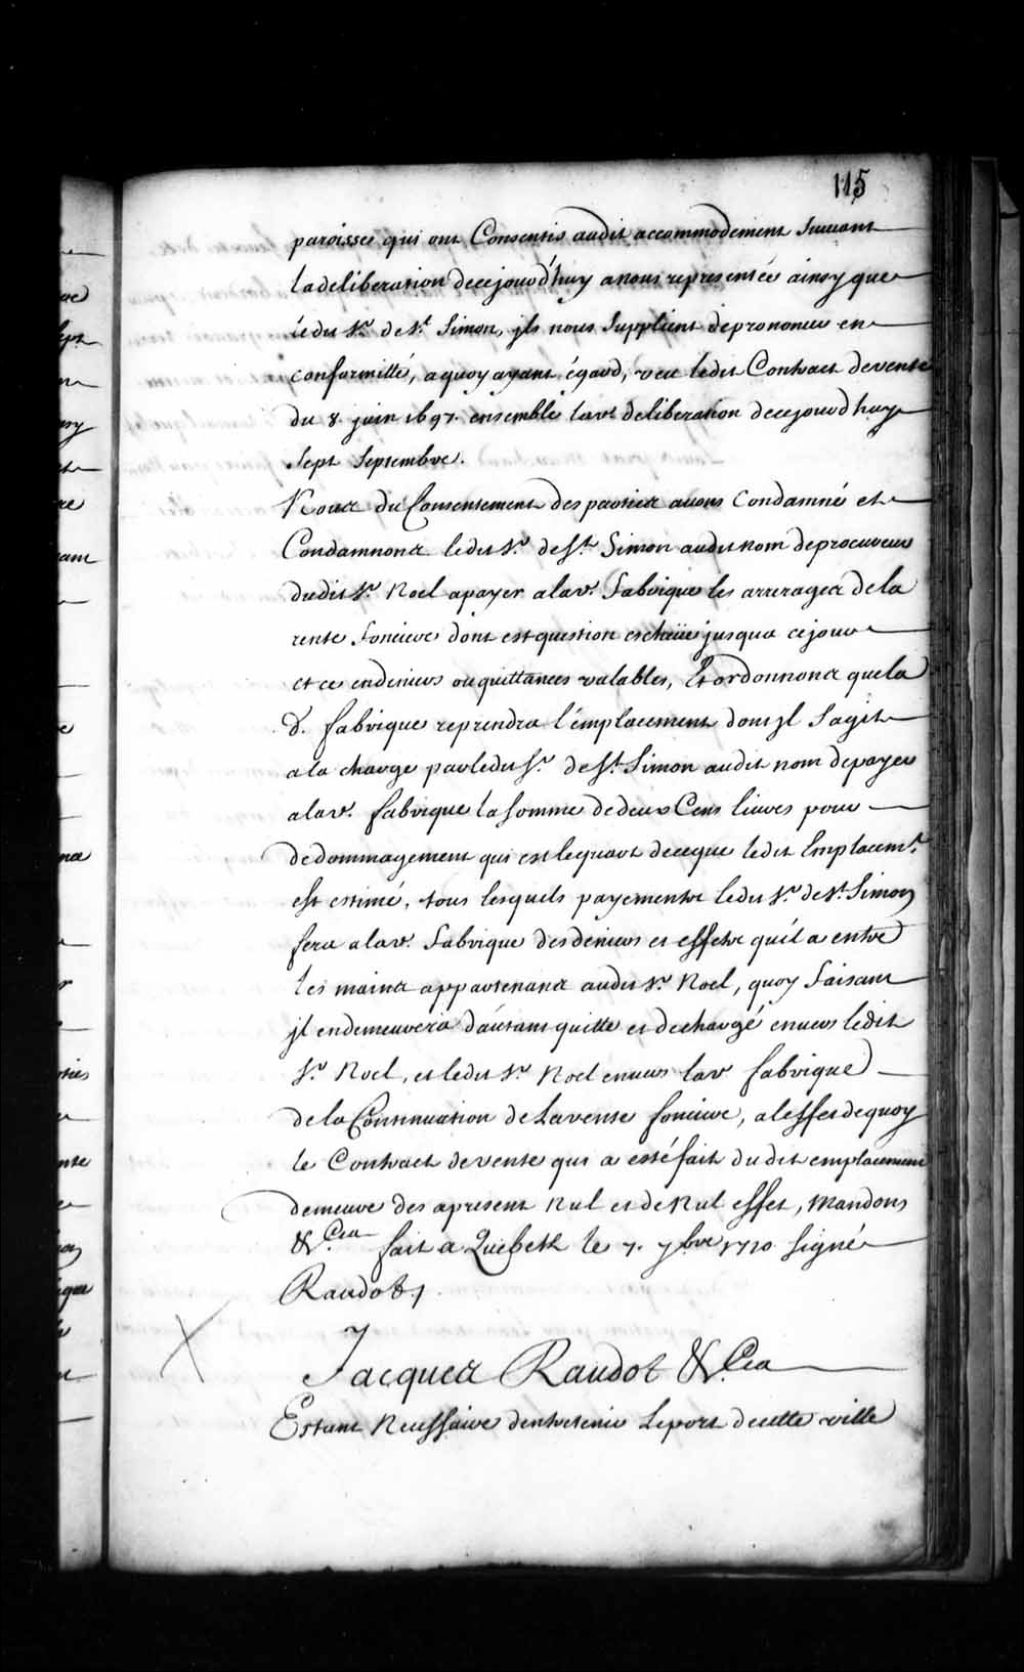 115
paroisse qui ont Consentis audit accommodement Suivant
la deliberation de cejourd'huy a nous representée ainsy que
ledit Sr. de St. Simon, jls nous Supplient de prononcer en
conformitté, a quoy ayant égard, veu ledit Contract de vente
du 8. juin 1697. ensemble lad. deliberation de cejourdhuy
Sept Septembre.
Nous du Consentement des parties avons Condamné et
Condamnons ledit Sr. de St. Simon audit nom de procureur
dudit Sr. Noel a payer a lad. fabrique les arrerages de la
rente fonciere dont est question escheüe jusqua ce jour
et ce en deniers ou quittances valables, Et ordonnons que la
d. fabrique reprendra l'emplacement dont jl Sagit
a la charge par ledit Sr. de St. Simon audit nom de payer
a lad. fabrique la Somme de deux Cens livres pour
dedommagement qui est le quart de ce que ledit Emplacemt.
est estimé, tous lesquels payements ledit Sr. de St. Simon
fera a lad. fabrique des deniers et effets qu'il a entre
les mains appartenans audit Sr. Noel, quoy faisant
jl en demeurera d'autant quitte et dechargé envers ledit
Sr. Noel, et ledit Sr. Noel envers lad. fabrique
de la Continuation de La rente fonciere, a leffet de quoy
le Contract de vente qui a esté fait dudit emplacement
demeure des apresent Nul et de Nul effet, Mandons
&.Ca fait a Quebek le 7. 7bre 1710 Signé
Raudot./.
Jacques Raudot &.Ca
Estant Necessaire dentretenir Leport de cette ville